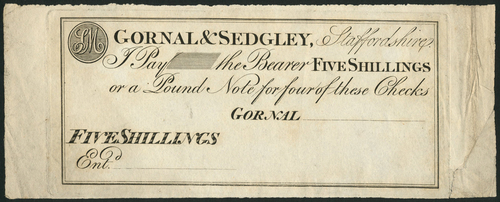 GORNAL & SEDGLEY, Staffordshire,
I Pay the Bearer FIVE SHILLINGS
or a Pound Note for four of these Checks
GORNAL
FIVE SHILLINGS
Ent.d